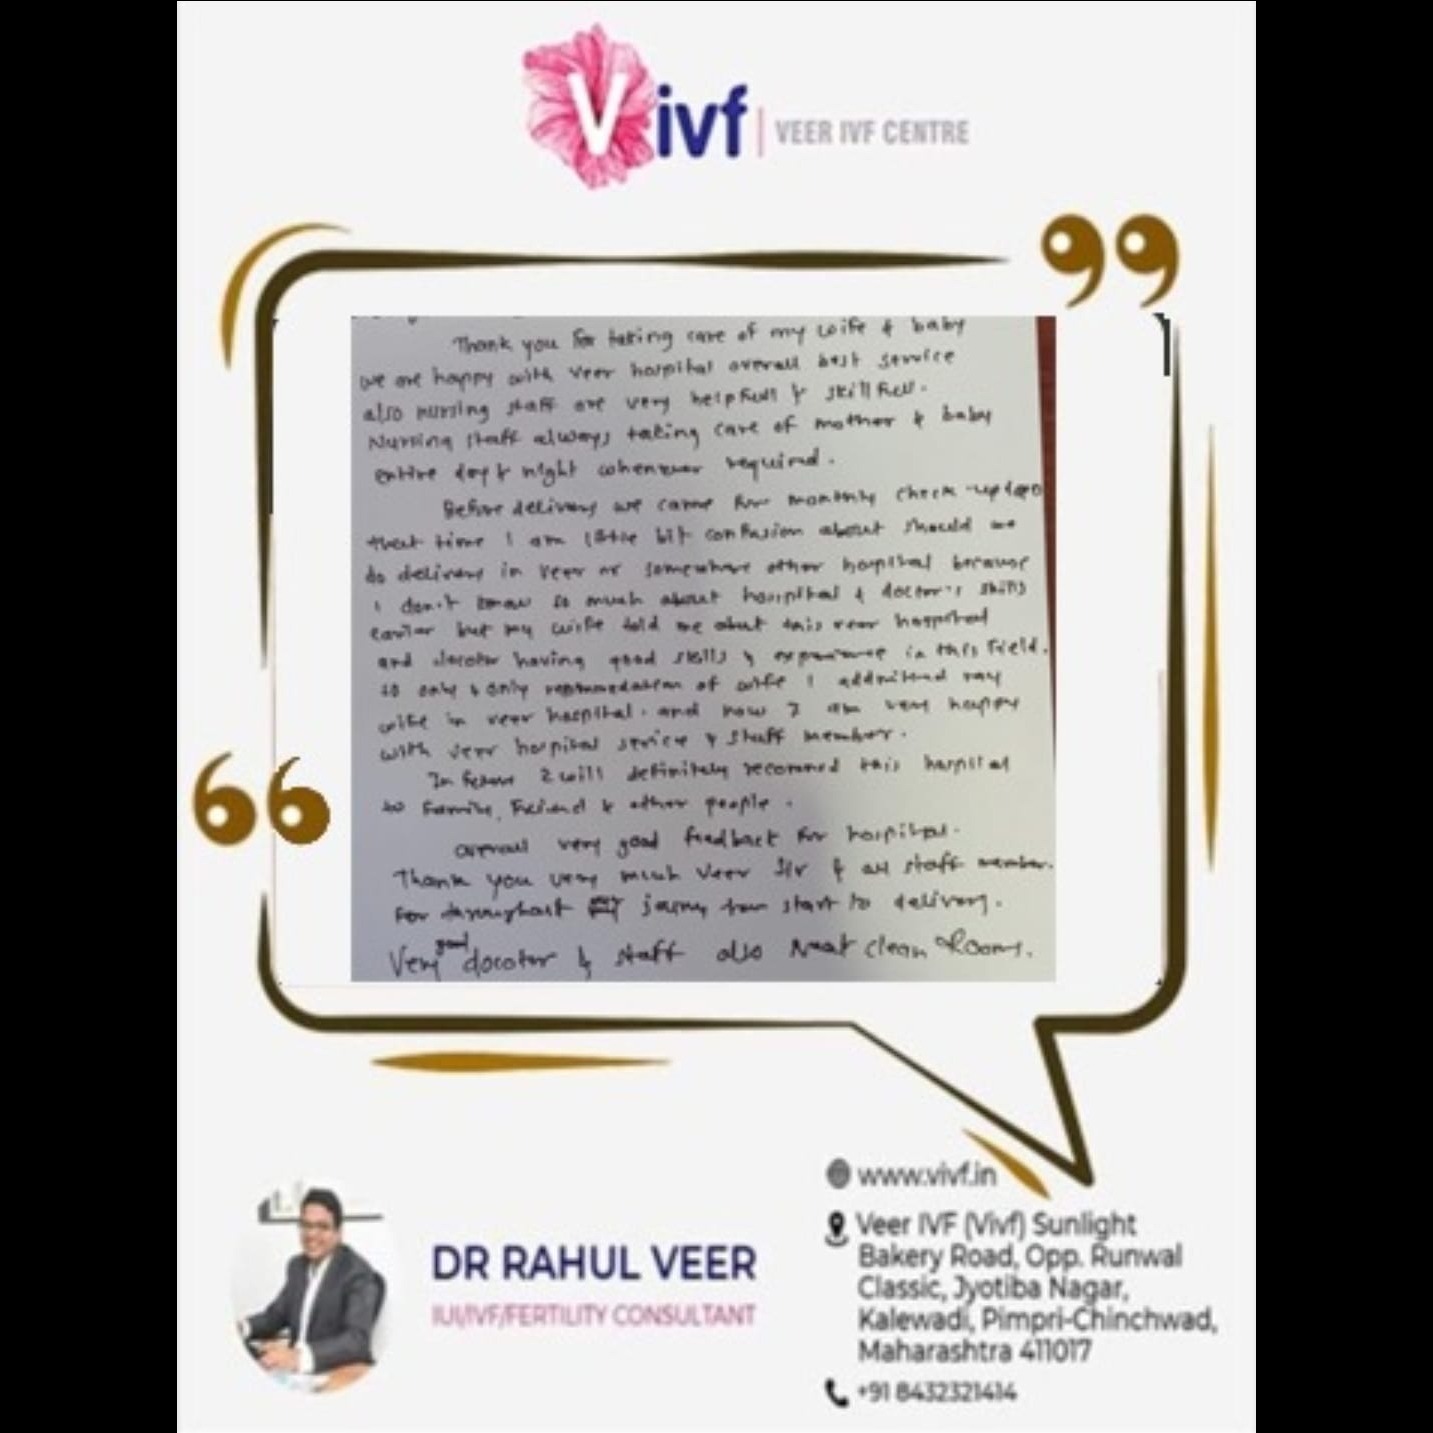 Vivf | VEER IVF CENTRE
Thank you for taking care of my wife & baby
we are happy with Veer hospital overall best service
also nursing staff are very helpfull & skillfull.
Nursing staff always taking care of mother & baby
entire day & night whenever required.
Before delivery we came for monthly check-up
that time I am little bit confusion about should we
do delivery in veer or somewhere other hospital because
I don't know so much about hospital & doctor's skills
earlier but my wife told me about this veer hospital
and docotor having good skills & experience in this field.
so only & only recommendation of wife I addmitted my
wife in veer hospital. and now I am very happy
with veer hospital service & staff member.
In future I will definitely recommend this hospital
to Family, Friend & other people.
overall very good feedback for hospital.
Thank you very much Veer Sir & all staff member.
For throughout journy from start to delivery.
Very good docotor & staff also Neat clean Rooms.
www.vivf.in
Veer IVF (Vivf) Sunlight
Bakery Road, Opp. Runwal
Classic, Jyotiba Nagar,
Kalewadi, Pimpri-Chinchwad,
Maharashtra 411017
+91 8432321414
DR RAHUL VEER
IUI/IVF/FERTILITY CONSULTANT